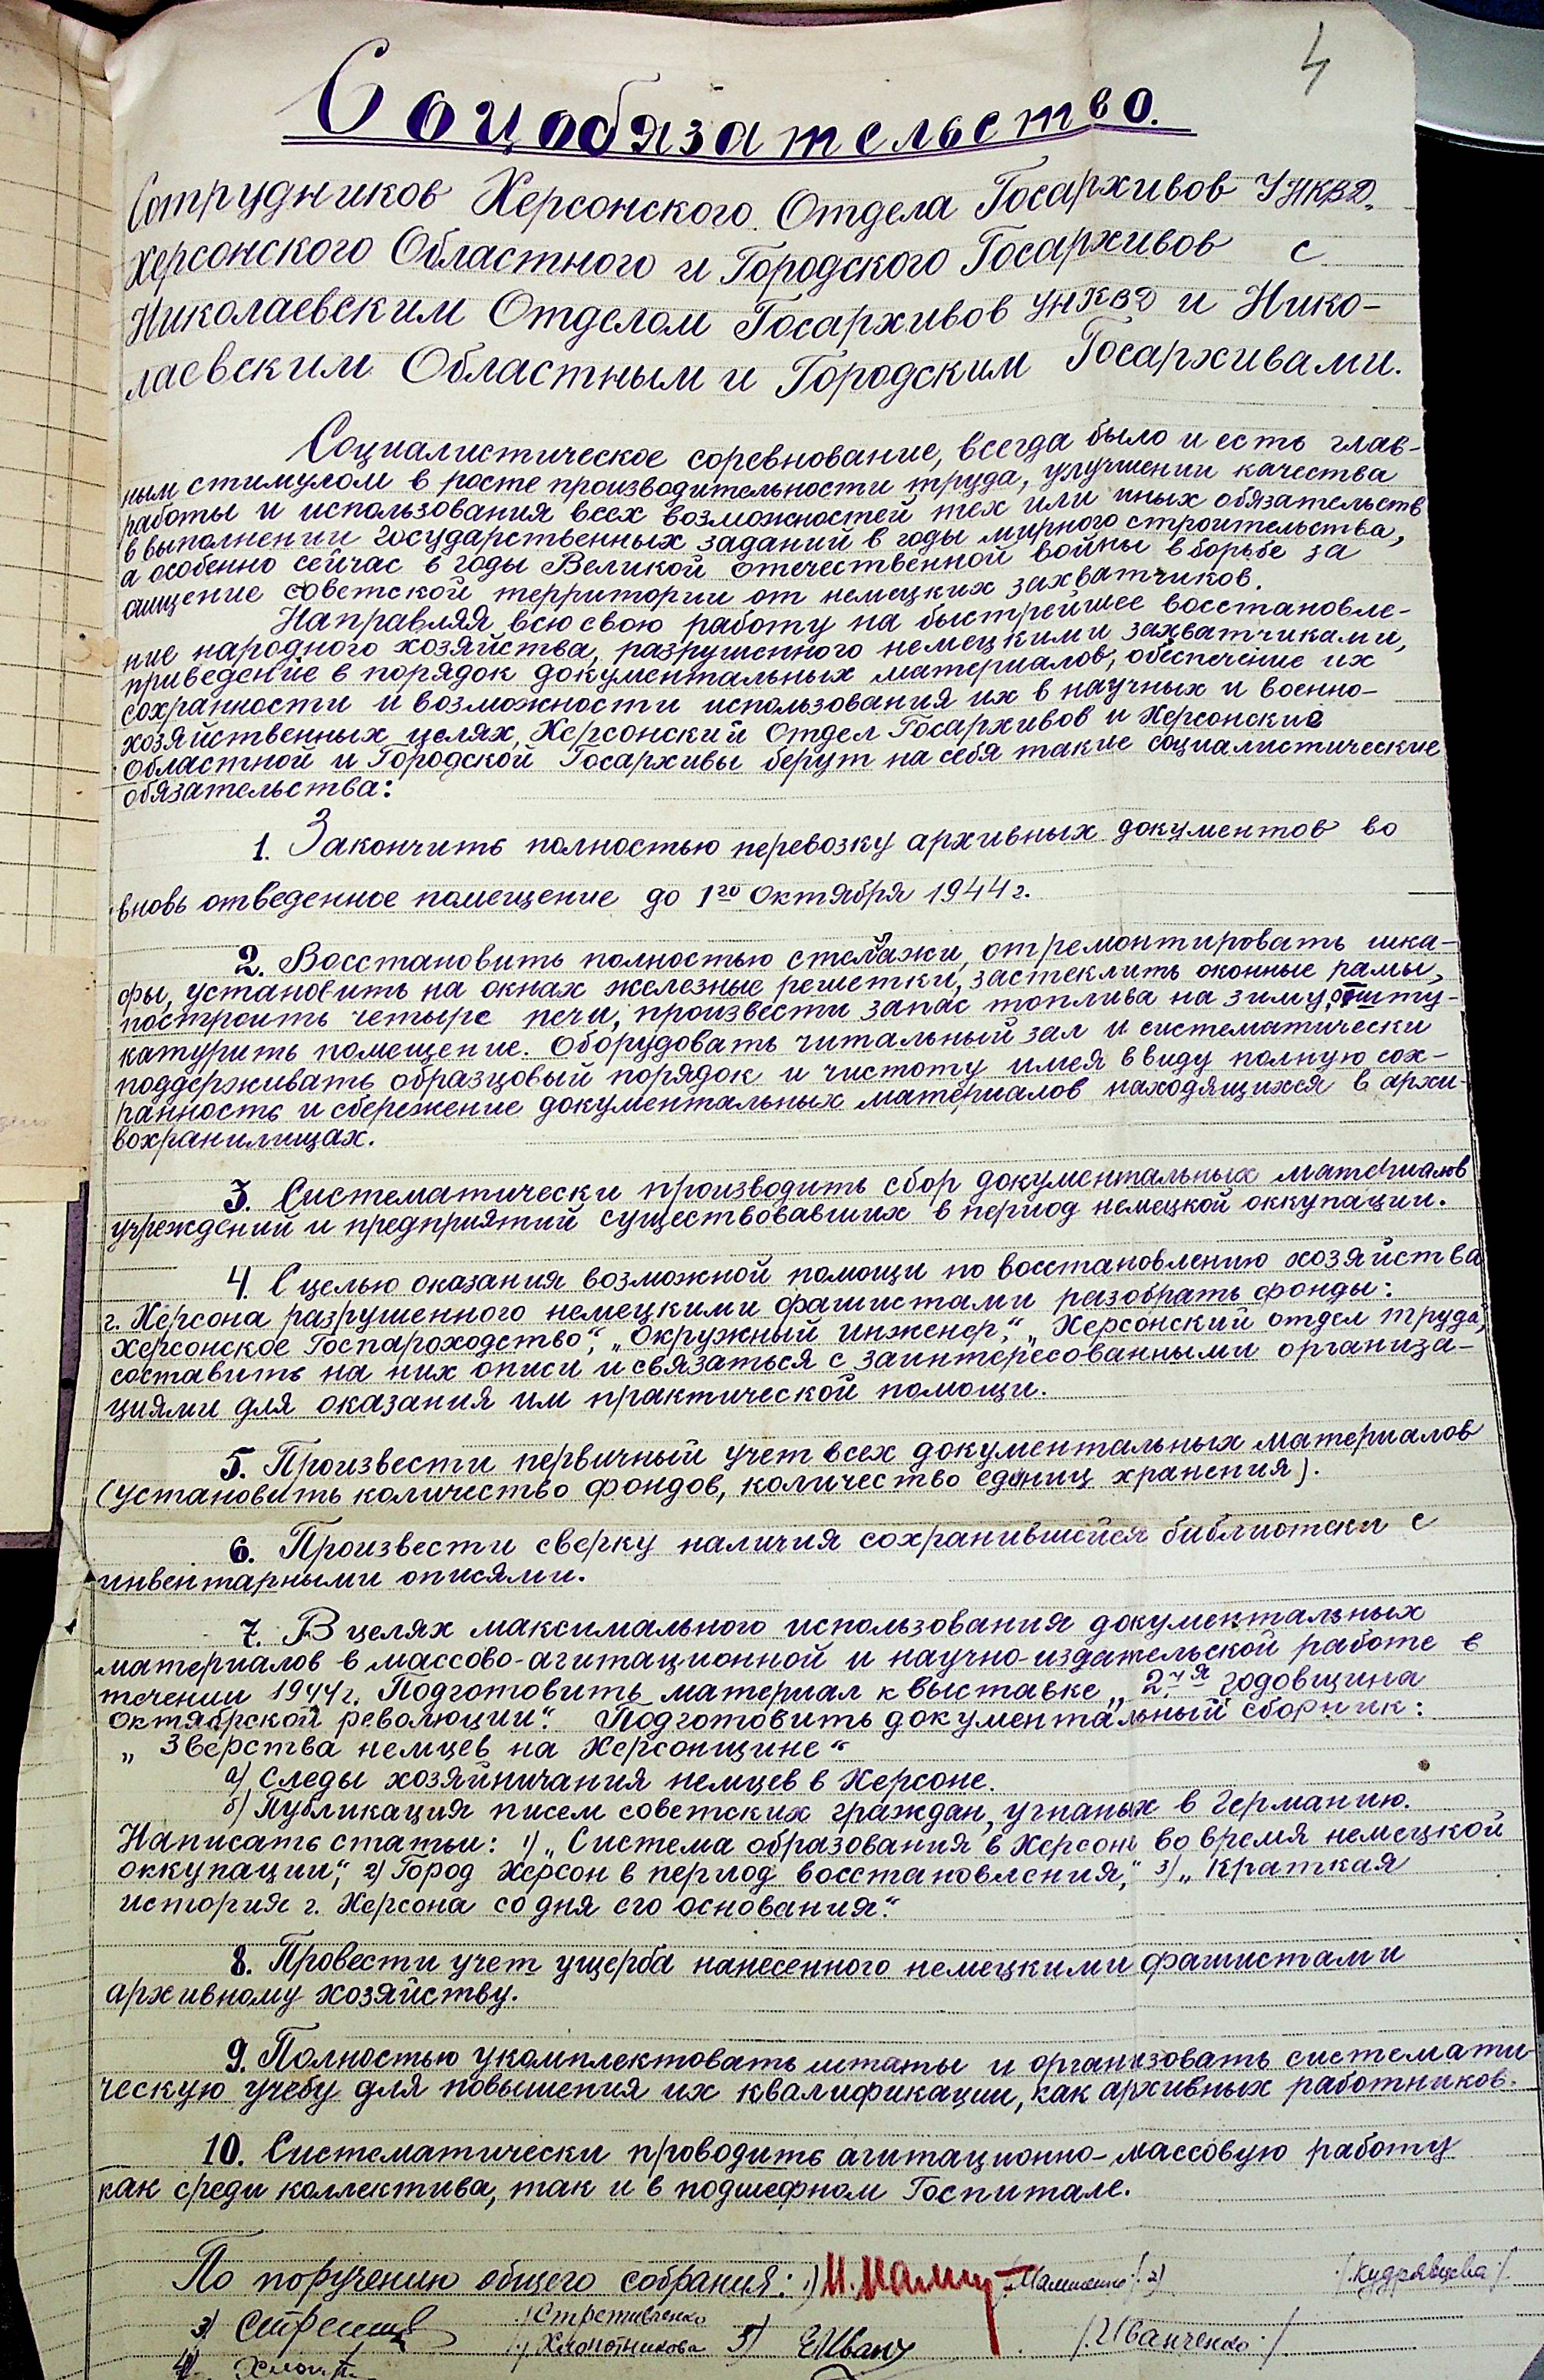 4
Соцобязательство.
Сотрудников Херсонского Отдела Госархивов УНКВД,
Херсонского Областного и Городского Госархивов с
Николаевским Отделом Госархивов УНКВД и Нико-
лаевским Областным и Городским Госархивами.
Социалистическое соревнование, всегда было и есть глав-
ным стимулом в росте производительности труда, улучшении качества
работы и использования всех возможностей тех или иных обязательств
в выполнении государственных заданий в годы мирного строительства,
а особенно сейчас в годы Великой отечественной войны в борьбе за
очищение советской территории от немецких захватчиков.
Направляя всю свою работу на быстрейшее восстановле-
ние народного хозяйства, разрушенного немецкими захватчиками,
приведение в порядок документальных материалов, обеспечение их
сохранности и возможности использования их в научных и военно-
хозяйственных целях, Херсонский Отдел Госархивов и Херсонские
Областной и Городской Госархивы берут на себя такие социалистические
обязательства:
1. Закончить полностью перевозку архивных документов во
вновь отведенное помещение до 1го Октября 1944 г.
2. Восстановить полностью стелажи, отремонтировать шка-
фы, установить на окнах железные решетки, застеклить оконные рамы,
построить четыре печи, произвести запас топлива на зиму, отшту-
катурить помещение. Оборудовать читальный зал и систематически
поддерживать образцовый порядок и чистоту имея ввиду полную сох-
ранность и сбережение документальных материалов находящихся в архи-
вохранилищах.
3. Систематически производить сбор документальных материалов
учреждений и предприятий существовавших в период немецкой оккупации.
4. С целью оказания возможной помощи по восстановлению хозяйства
г. Херсона разрушенного немецкими фашистами разобрать фонды:
Херсонское Госпароходство", „Окружный инженер", „Херсонский отдел труда",
составить на них описи и связаться с заинтересованными организа-
циями для оказания им практической помощи.
5. Произвести первичный учет всех документальных материалов
(установить количество фондов, количество единиц хранения).
6. Произвести сверку наличия сохранившейся библиотеки с
инвентарными описями.
7. В целях максимального использования документальных
материалов в массово-агитационной и научно-издательской работе в
течении 1944 г. Подготовить материал к выставке „27-я годовщина
Октябрской революции". Подготовить документальный сборник:
„Зверства немцев на Херсонщине"
а) Следы хозяйничания немцев в Херсоне.
б) Публикация писем советских граждан, угнаных в Германию.
Написать статьи: 1) „Система образования в Херсоне во время немецкой
оккупации", 2) Город Херсон в период восстановления", 3) „Краткая
история г. Херсона со дня его основания".
8. Провести учет ущерба нанесенного немецкими фашистами
архивному хозяйству.
9. Полностью укомплектовать штаты и организовать системати-
ческую учебу для повышения их квалификации, как архивных работников.
10. Систематически проводить агитационно-массовую работу
как среди коллектива, так и в подшефном Госпитале.
По поручению общего собрания: 1) 2) /Кудрявцева/.
3) 
4) /Хлопотникова 5) ЕИван /Иванченко/